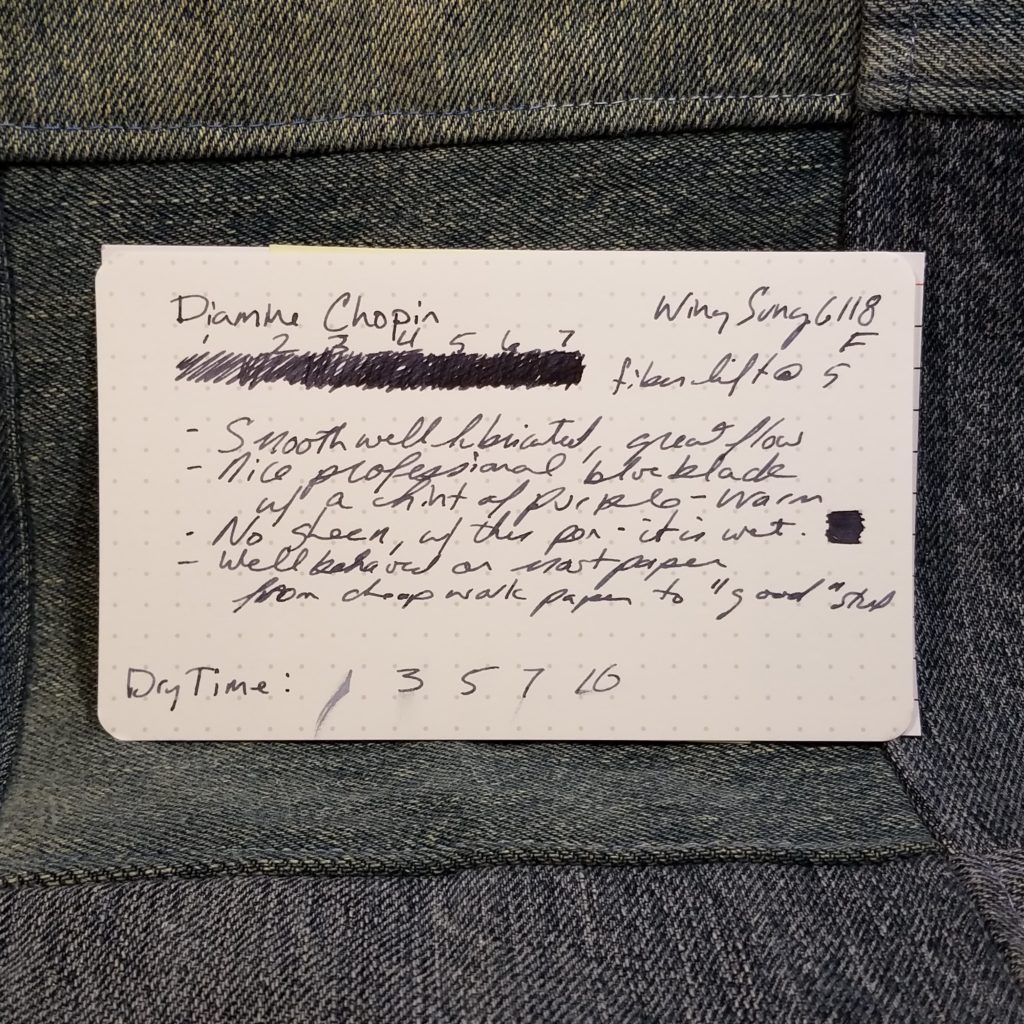 Diamine Chopin
Wing Sung 6118
F
1 2 3 4 5 6 7
fiber lift @ 5
- Smooth well lubricated, great flow
- Nice professional blue black
w/ a hint of purple - warm
- No sheen, w/ this pen - it is wet.
- Well behaved on most paper
from cheap work paper to "good" stuff
Dry Time: 1 3 5 7 10